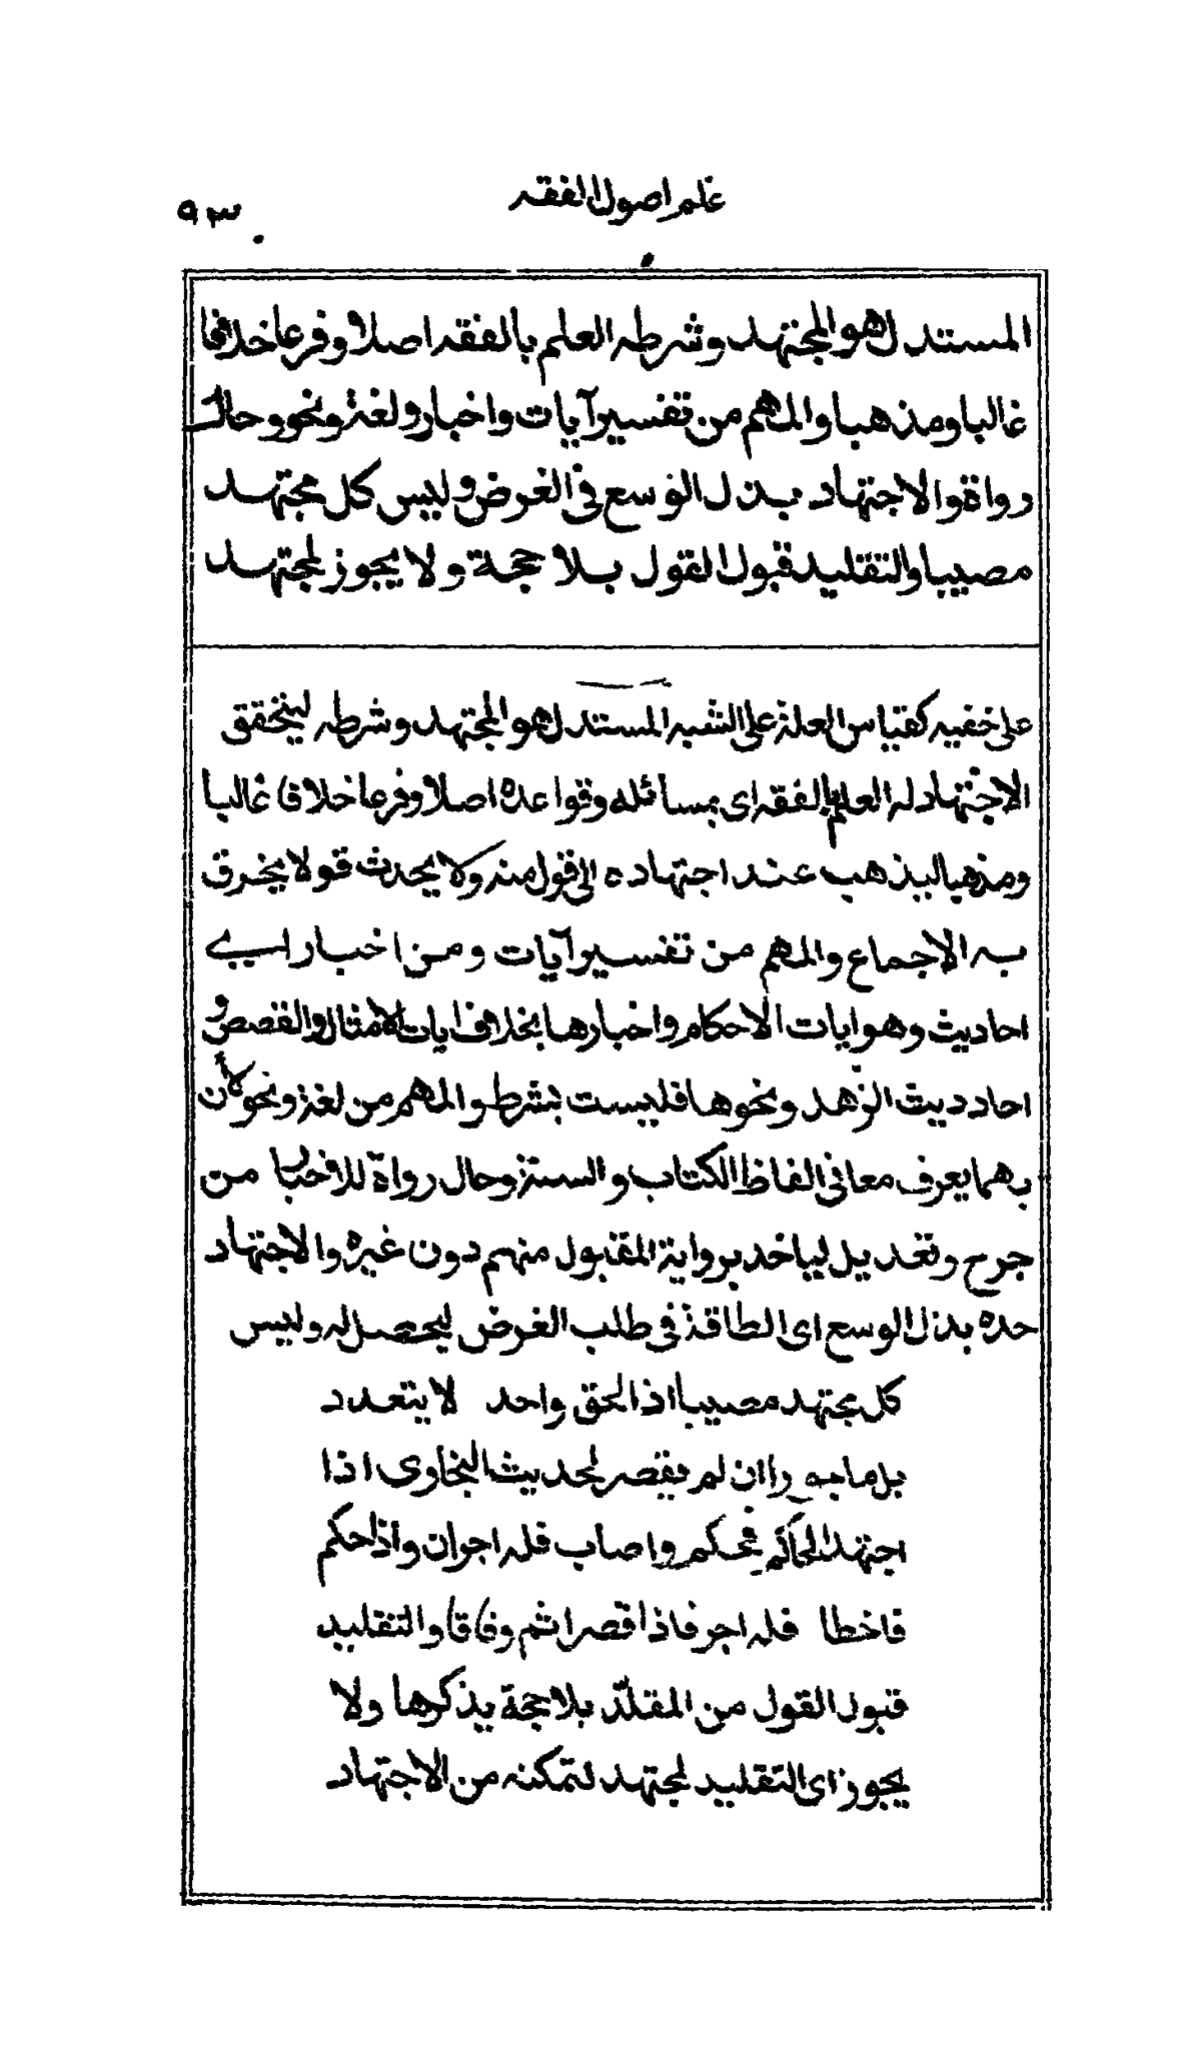 علم اصول الفقه
٩٣
المستدل هو المجتهد وشرطه العلم بالفقه اصلا وفرعا خلافا
غالبا ومذهبا والمهم من تفسير آيات واخبار ولغة ونحو وحال
رواة والاجتهاد بذل الوسع فى الغرض وليس كل مجتهد
مصيبا والتقليد قبول القول بلا حجة ولا يجوز لمجتهد
على خفيه كقياس العلة على الشبه المستدل هو المجتهد وشرطه ليتحقق
الاجتهاد له العلم بالفقه اى بمسائله وقواعده اصلا وفرعا خلافا غالبا
ومذهبا ليذهب عند اجتهاده الى قول منه ولا يحدث قولا يخرق
به الاجماع والمهم من تفسير آيات ومن اخبار اى
احاديث وهو ايات الاحكام واخبارها بخلاف ايات الامثال والقصص و
احاديث الزهد ونحوها فليست بشرط والمهم من لغة ونحو لأن
بهما يعرف معانى الفاظ الكتاب والسنة وحال رواة للاخبار من
جرح وتعديل لياخذ برواية المقبول منهم دون غيره والاجتهاد
حده بذل الوسع اى الطاقة فى طلب الغرض ليحصل له وليس
كل مجتهد مصيبا اذ الحق واحد لا يتعدد
بل ماجور ان لم يقصر لحديث البخارى اذا
اجتهد الحاكم فحكم واصاب فله اجران واذا حكم
فاخطا فله اجر فاذا قصر اثم وفاقا والتقليد
قبول القول من المقلد بلا حجة يذكرها ولا
يجوز اى التقليد لمجتهد لتمكنه من الاجتهاد